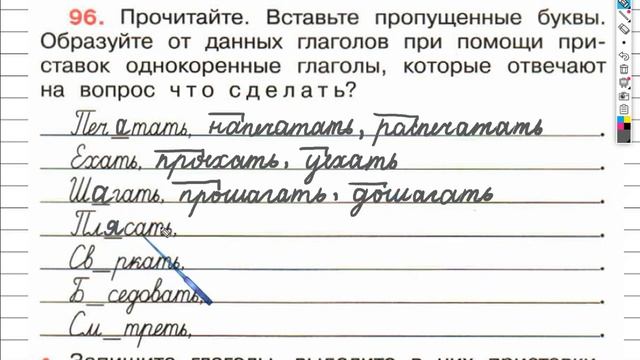 96. Прочитайте. Вставьте пропущенные буквы.
Образуйте от данных глаголов при помощи при-
ставок однокоренные глаголы, которые отвечают
на вопрос что сделать?
Печатать, напечатать, распечатать.
Ехать, проехать, уехать.
Шагать, прошагать, дошагать.
Плясать,
Св_ркать,
Б_седовать,
См_треть,
Запишите глаголы, выделите в них приставки.